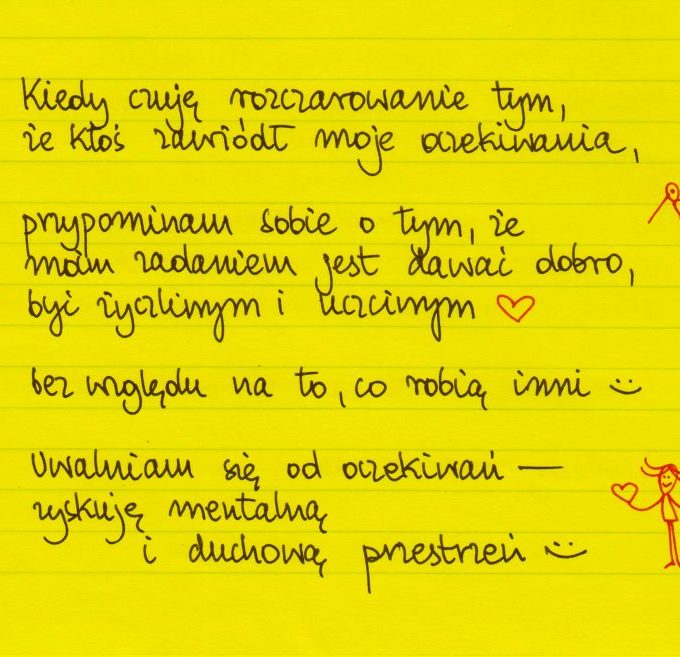 Kiedy czuję rozczarowanie tym,
że ktoś zawiódł moje oczekiwania,
przypominam sobie o tym, że
moim zadaniem jest dawać dobro,
być życzliwym i uczciwym ♡
bez względu na to, co robią inni :)
Uwalniam się od oczekiwań —
zyskuję mentalną
i duchową przestrzeń :)